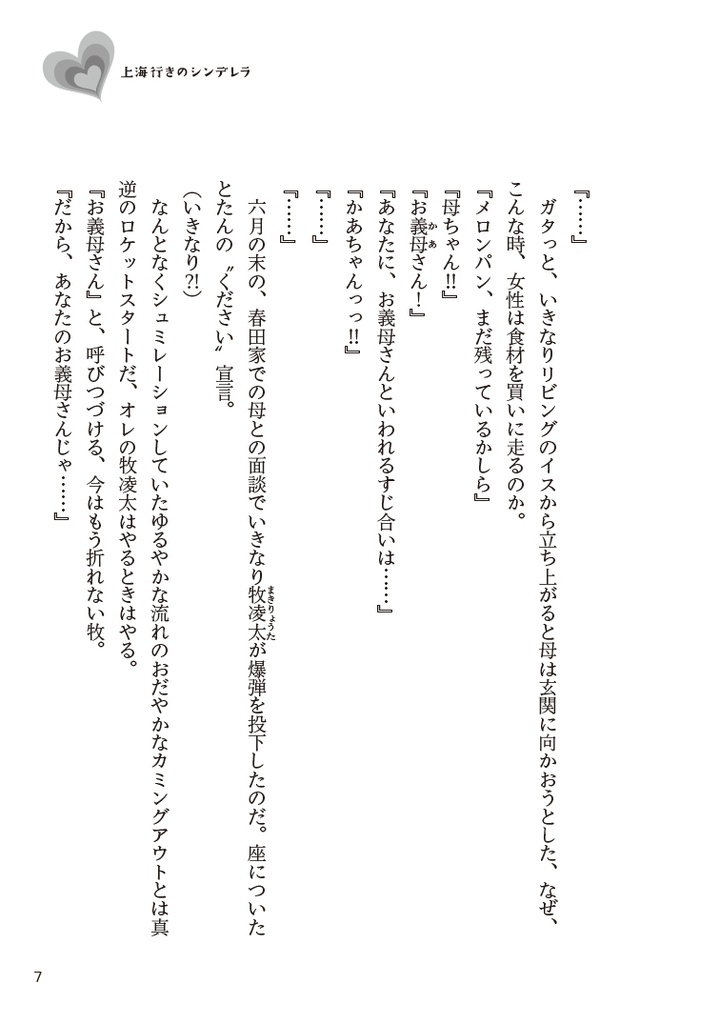 上海行きのシンデレラ
『……』
ガタっと、いきなりリビングのイスから立ち上がると母は玄関に向かおうとした、なぜ、
こんな時、女性は食材を買いに走るのか。
『メロンパン、まだ残っているかしら』
『母ちゃん!!』
『お義母さん！』
『あなたに、お義母さんといわれるすじ合いは……』
『かあちゃんっっ!!』
『……』
『……』
六月の末の、春田家での母との面談でいきなり牧凌太が爆弾を投下したのだ。座についた
とたんの〝ください〟宣言。
（いきなり?!）
なんとなくシュミレーションしていたゆるやかな流れのおだやかなカミングアウトとは真
逆のロケットスタートだ、オレの牧凌太はやるときはやる。
『お義母さん』と、呼びつづける、今はもう折れない牧。
『だから、あなたのお義母さんじゃ……』
7